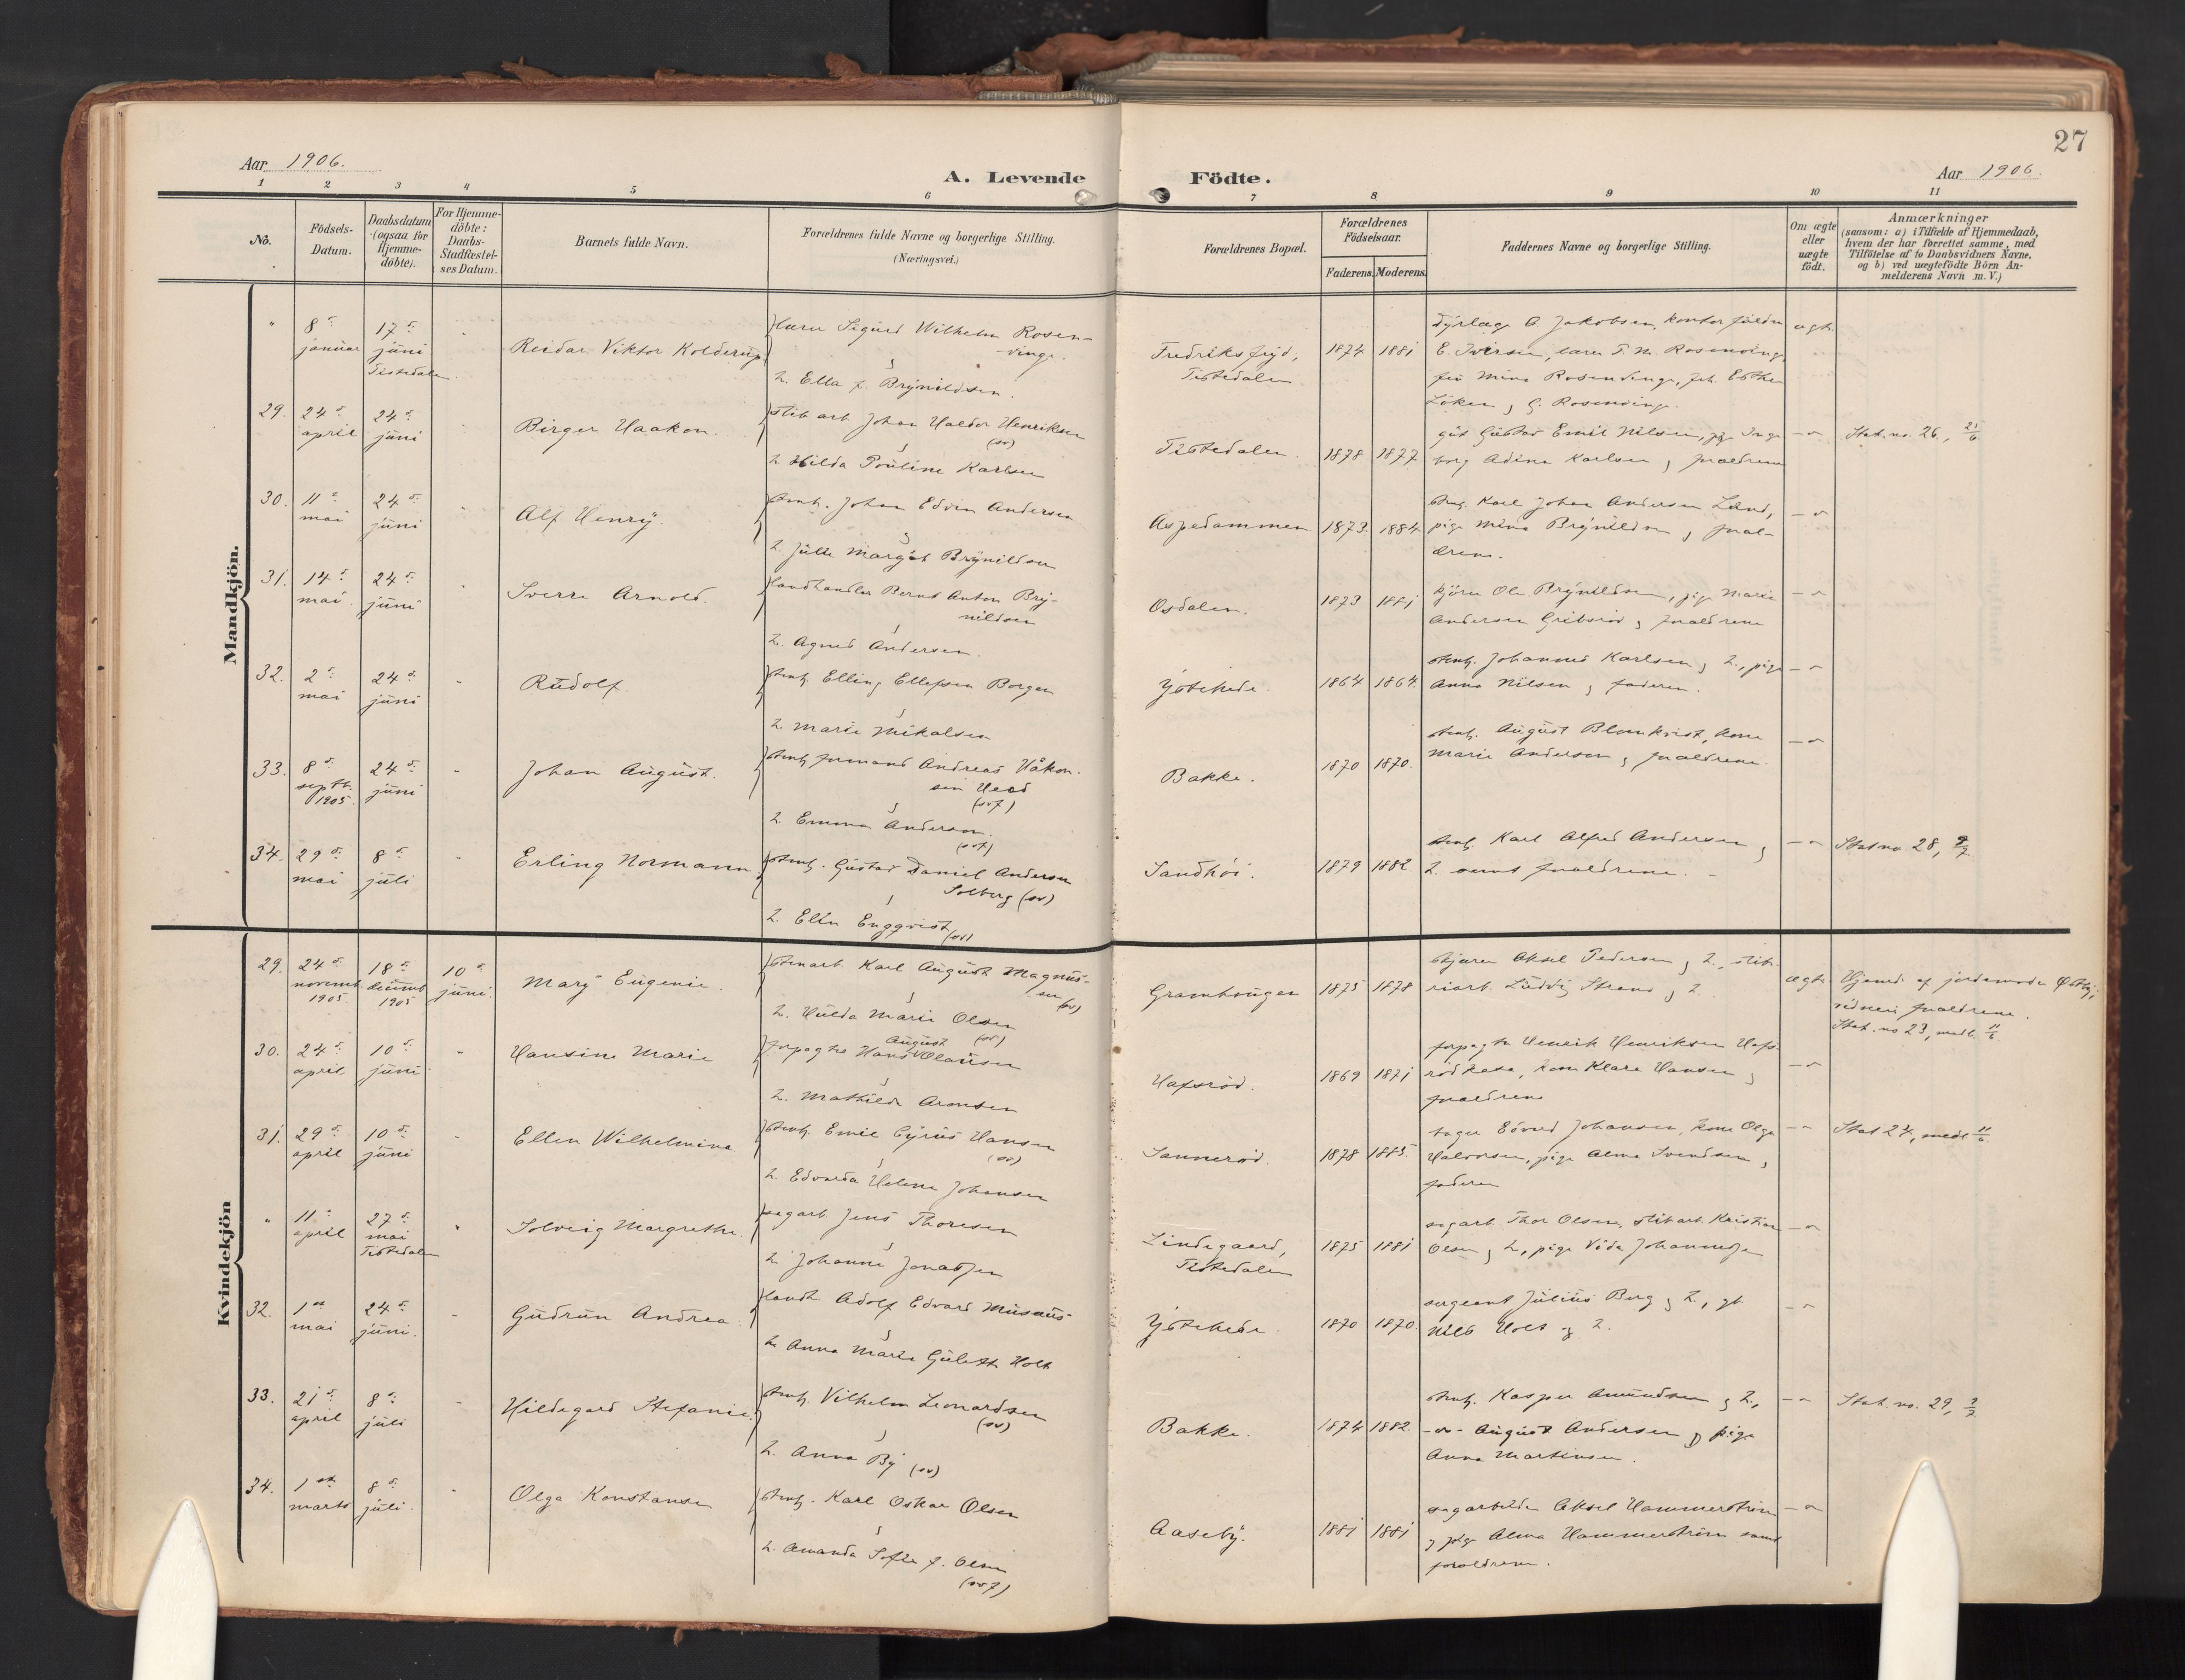 27
Aar 1906.
A. Levende Födte.
Aar 1906.
1 2 3 4 5 6 7 8 9 10 11
No.
Födsels-Datum.
Daabsdatum (ogsaa for Hjemme-döbte).
For Hjemme-döbte: Daabs-Stadfæstel-ses Datum.
Barnets fulde Navn.
Forældrenes fulde Navne og borgerlige Stilling.
(Næringsvei.)
Forældrenes Bopæl.
Forældrenes Födselsaar.
Faderens. Moderens.
Faddernes Navne og borgerlige Stilling.
Om ægte eller uægte födt.
Anmærkninger
(saasom: a) i Tilfælde af Hjemmedaab,
hvem der har forrettet samme, med
Tilföielse af to Daabsvidners Navne,
og b) ved uægtefödte Börn An-
melderens Navn m. V.)
Mandkjön.
" 8de januar 17de juni Tistedalen Reidar Viktor Kolderup
Sigurd Wilhelm Rosenvinge
h. Ella f. Brynildsen.
Fredriksfryd, Tistedalen 1874 1881
O. Jakobsen,
E. Iversen, T. M. Rosenvinge
Mina Rosenvinge, Esther
Löken, G. Rosenvinge
ægte
29. 24de april 24de juni Birger Haakon.
Johan Haldor Henriksen
(sv)
h. Hilda Pouline Karlsen
Tistedalen. 1878 1877
gut Gustav Emil Nilsen, pige Inge-
borg Adina Karlsen, foraldrene
Stat. no. 26, 25/6
30. 11te mai 24de juni Alf Henry.
Johan Edvin Andersen
h. Julie Margot Brynildsen
Aspedammen 1873. 1884
Karl Johan Andersen Lund,
pige Mina Brynildsen, foraldrene.
31. 14de mai 24de juni Sverre Arnold.
Landhandler Bernt Anton Brynildsen
h. Agnes Andersen.
Osdalen. 1873 1881
Ole Brynildsen, pige Marie
Andersen Gribsröd, foraldrene
32. 2de mai 24de juni Rudolf.
Elling Ellefsen Borgen
h. Marie Mikalsen
1864 1864
Johannes Karlsen, h., pige
Anna Nilsen, faderen.
33. 8de septb. 1905 24de juni Johan August.
formand Andreas Håkonsen
(svf)
h. Emma Anderson.
(svf)
Bakke. 1870 1870.
August Blomkvist, kone
Marie Anderson, foraldrene
34. 29de mai 8de juli Erling Normann
Gustav Daniel Andersen
Solberg (sv)
h. Elin Engqvist (sv)
Sandhöi. 1879 1882
Karl Alfred Andersen
h. samt foraldrene.
Stat no 28, 9/7
Kvindekjön
29. 24de novemb. 1905 18de decemb. 1905 10de juni. Mary Eugenie.
Karl August Magnussen (sv)
h. Hulda Marie Olsen
(sv)
1875 1878
Aksel Pedersen, h.,
Ludvig Strand, h.
ægte
Hjemd. af jordemoder Østby,
vidner foraldrene.
Stat. no 23, medt. 11/6
30. 24de april 10de juni Hansine Marie
forpagter Hans August Olausen
h. Mathilde Aronsen
Hafsröd. 1869 1871
forpagter Henrik Henriksen
kone Klara Hansen,
foraldrene
31. 29de april 10de juni Ellen Wilhelmina
Emil Cyrus Hansen
(sv)
h. Edvarda Helene Johansen
Sanneröd. 1878 1885
Edvard Johansen, kone Olga
Halvorsen, pige Alma Svendsen,
faderen
Stat 24, medt 11/6
" 11te april 27de mai Tistedalen Solveig Margrethe.
sagarb. Jens Thoresen
h. Johanne
Lindegaard, Tistedalen 1875 1881
sagarb. Thor Olsen, slibarb. Kristian
Olsen, h., pige
32. 1ste mai 24de juni. Gudrun Andrea
Adolf Edvard Musæus
h. Anna Marie Gulette Holt
1870 1870.
sergeant Julius Berg, h.,
Nils Holt og h.
33. 21de april 8de juli Hildegard Stefanie.
Vilhelm Leonardsen
(sv)
h. Anna By (sv)
Bakke. 1874 1882
Kasper Amundsen, h.,
August Andersen, pige
Anna Martinsen.
Stat. no. 29, 9/7
34. 1ste marts 8de juli. Olga Konstanse
Karl Oskar Olsen
h. Amanda Sofie f. Olsen
(svf)
Aaseby. 1881 1881
sagarbeider Aksel Hammerström
pige Alma Hammerström samt
foraldrene.